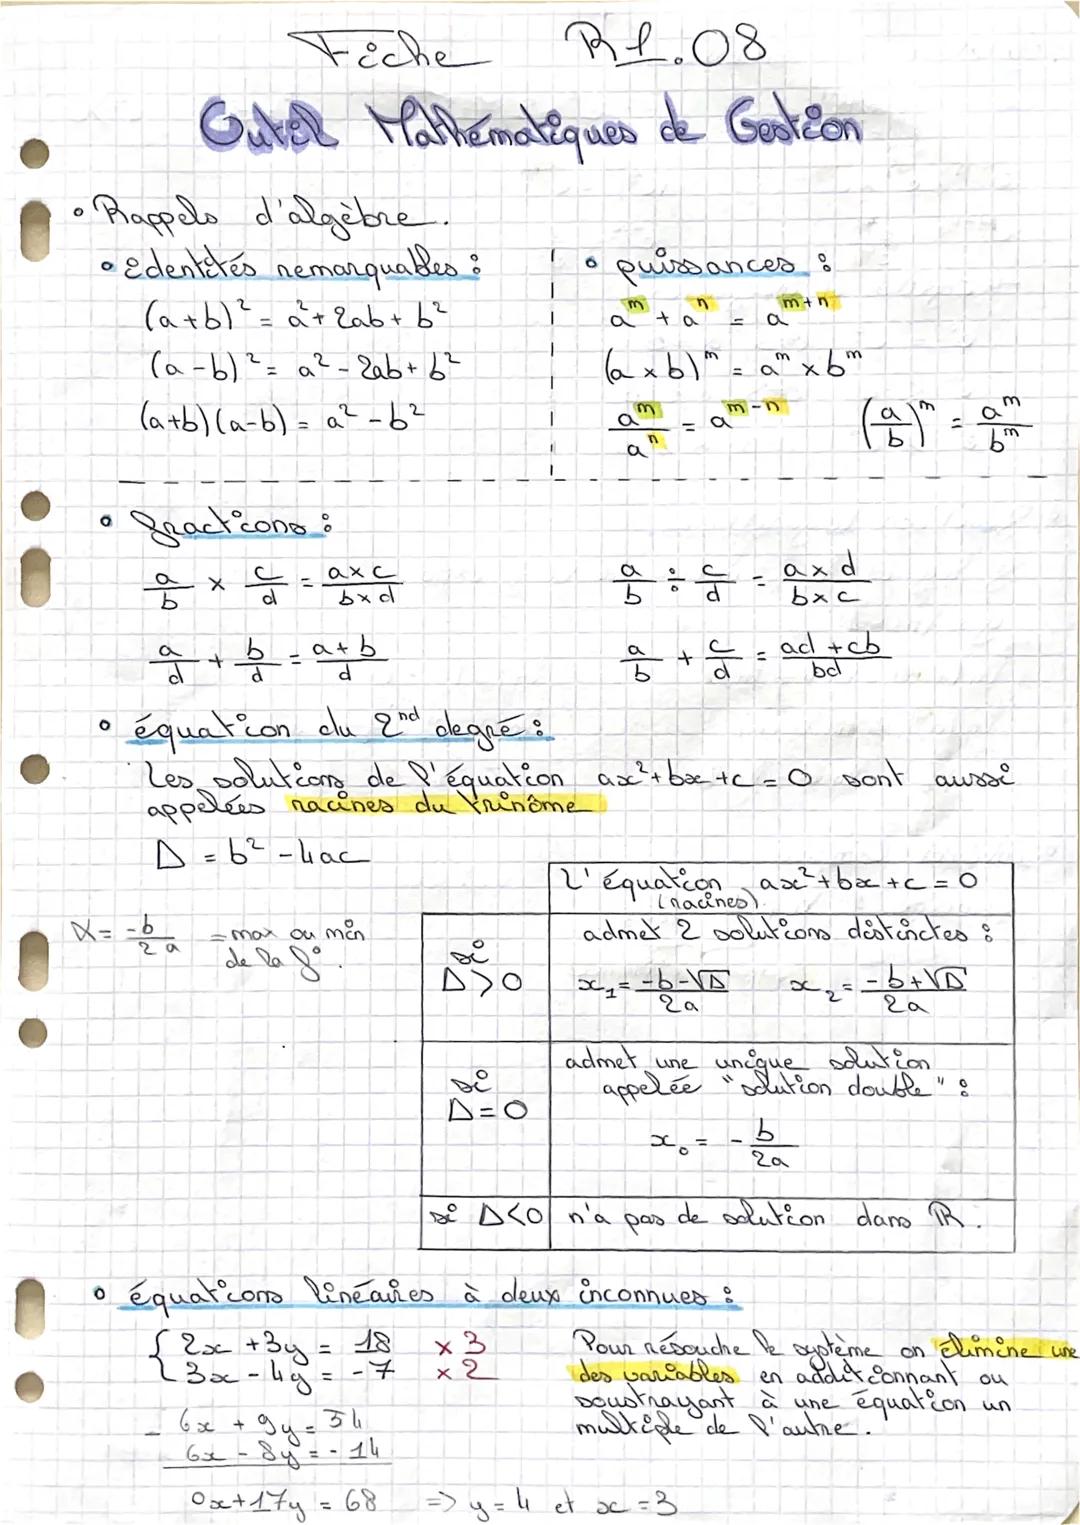 Fiche R1.08
Outil Mathématiques de Gestion
• Rappels d'algèbre.
• identités remarquables :
(a+b)² = a² + 2ab + b²
(a-b)² = a² - 2ab + b²
(a+b)(a-b) = a² - b²
• puissances :
a^m + a^n = a^(m+n)
(a × b)^m = a^m × b^m
a^m / a^n = a^(m-n) (a/b)^m = a^m / b^m
• fractions :
a/b × c/d = a×c / b×d a/b ÷ c/d = a×d / b×c
a/d + b/d = a+b / d a/b + c/d = ad+cb / bd
• équation du 2nd degré :
Les solutions de l'équation ax²+bx+c = 0 sont aussi
appelées racines du trinôme
Δ = b² - 4ac
α = -b / 2a = max ou min
de la f°.
L'équation ax²+bx+c = 0
(racines)
si
Δ > 0
admet 2 solutions distinctes :
x₁ = -b-√Δ / 2a x₂ = -b+√Δ / 2a
si
Δ = 0
admet une unique solution
appelée "solution double" :
x₀ = - b / 2a
si Δ<0 n'a pas de solution dans ℝ.
• équations linéaires à deux inconnues :
{ 2x + 3y = 18 × 3
3x - 4y = -7 × 2
- 6x + 9y = 54
6x - 8y = - 14
0x + 17y = 68 => y = 4 et x = 3
Pour résouche le système on élimine une
des variables en additionnant ou
soustrayant à une équation un
multiple de l'autre.